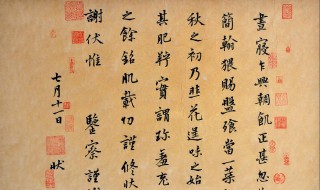 晝寢乍興輖飢正甚忽
簡翰猥賜盤飧當一葉
秋之初乃韭花逞味之始
其肥羜實謂珍羞充
之餘銘肌載切謹修狀
謝伏惟 鑒察謹
七月十一日 狀